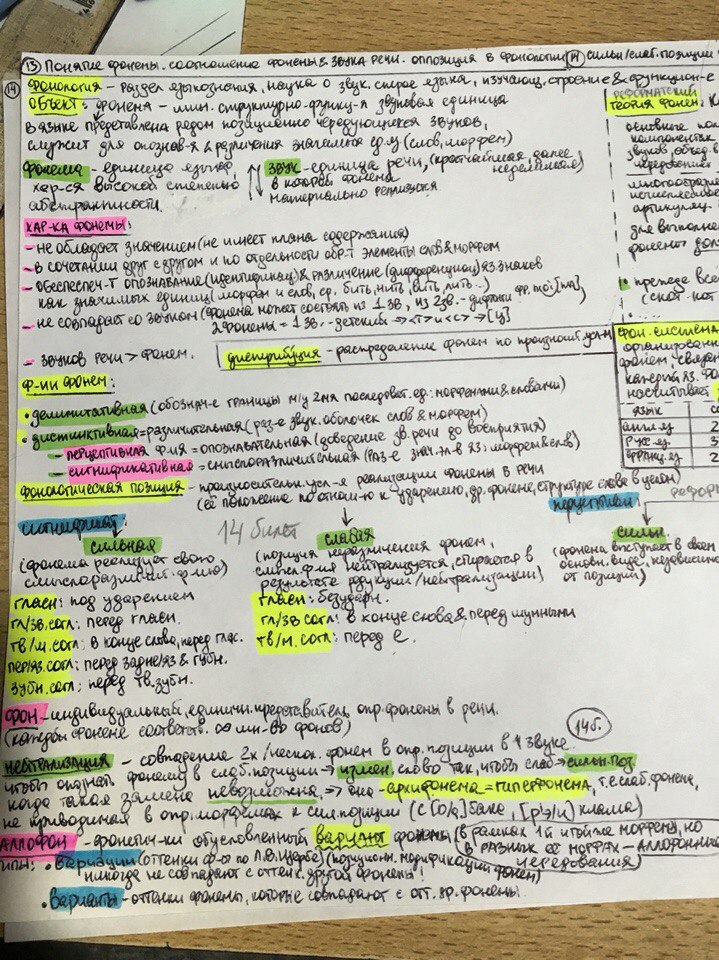 13) Понятие фонемы. Соотношение фонемы & звука речи. Оппозиция в фонологии 14 сильн/слаб. позиции
14 Фонология – раздел языкознания, наука о звук. строе языка, изучающ. строение & функцион-е
Объект: фонема – мин. структурно-функц-я звуковая единица
в языке представлена рядом позиционно чередующихся звуков,
служит для опознав-я & различения значимых ед. яз (слов, морфем)
Фонема – единица языка,
хар-ся высокой степенью
абстрактности.
Звук – единица речи, (кратчайшая, далее неделимая)
в которой фонема
материально реализуется
Хар-ка фонемы:
– не обладает значением (не имеет плана содержания)
– в сочетании друг с другом и по отдельности обр-т элементы слов & морфем
– обеспечен-т опознавание (идентификац) & различение (дифференциац) яз. знаков
как значимых единиц (морфем и слов, ср. бить, нить, вить, лить..)
– не совпадает со звуком (фонема может состоять из 1 зв, из 2 зв. – дифтонги
2 фонемы = 1 зв. – детский → <т> и <с> → [ц]
– звуков речи > фонем.
дистрибуция – распределение фонем по произносит. усл-м
Ф-ии фонем:
• делимитативная (обознач-е границы м/у 2мя последоват. ед.: морфемами & словами)
• дистинктивная = различительная (раз-е звук. оболочек слов & морфем)
– перцептивная ф-ия = опознавательная (доведение зв. речи до восприятия)
– сигнификативная = смыслоразличительная (раз-е знач. эл-в яз: морфем & слов)
Фонологическая позиция – произносительн. усл-я реализации фонемы в речи
(её положение по отнош-ю к ударению, др. фонеме, структуре слова в целом)
сигнификат
14 билет
перцептивн
РЕФОР
сильная
(фонема реализует свою
смыслоразличит. ф-ию)
гласн: под ударением
гл/зв. согл: перед гласн.
тв/м. согл: в конце слова, перед глас.
пер/яз. согл: перед заднеяз & губн.
зубн. согл: перед тв. зубн.
слабая
(позиция неразличения фонем,
смысл. ф-ия нейтрализуется, стирается в
результате редукции/нейтрализации)
гласн: безударн.
гл/зв согл: в конце слова & перед шумными
тв/м. согл: перед е.
сильн.
(фонема выступает в своем
основн. виде, независимо
от позиции)
Фон – индивидуальный, единичн. представитель опр. фонемы в речи.
(каждой фонеме соответств. ∞ мн-во фонов)
14б.
Нейтрализация – совпадение 2х/нескол. фонем в опр. позиции в 1 звуке
чтобы опознать фонему в слаб. позиции → измен. слово так, чтобы слаб → сильн. поз.
когда такая замена невозможна → она – архифонема = гиперфонема, т.е. слаб. фонема,
не приводимая в опр. морфемах к сил. позиции (с [о/а]баке,
Аллофон – фонетич-ки обусловленный вариант фонемы (в рамках 1й и той же морфемы, но
в разных её морфах – аллофонные
чередования)
типы: • вариации (оттенки ф-ы по Л.В. Щербе) (позицион. модификации фонем)
никогда не совпадают с оттенк. другой фонемы!
• варианты – оттенки фонемы, которые совпадают с отт. др. фонемы
РЕФОРМАТСКИЙ
Теория фонем:
основные
звуков, объед. в
чередования
артикуляц.
фонемы
• прежде все
Фон. система
организован
фонем, связан
каждая яз.
насчитывает
язык
англ. яз
рус. яз
франц. яз